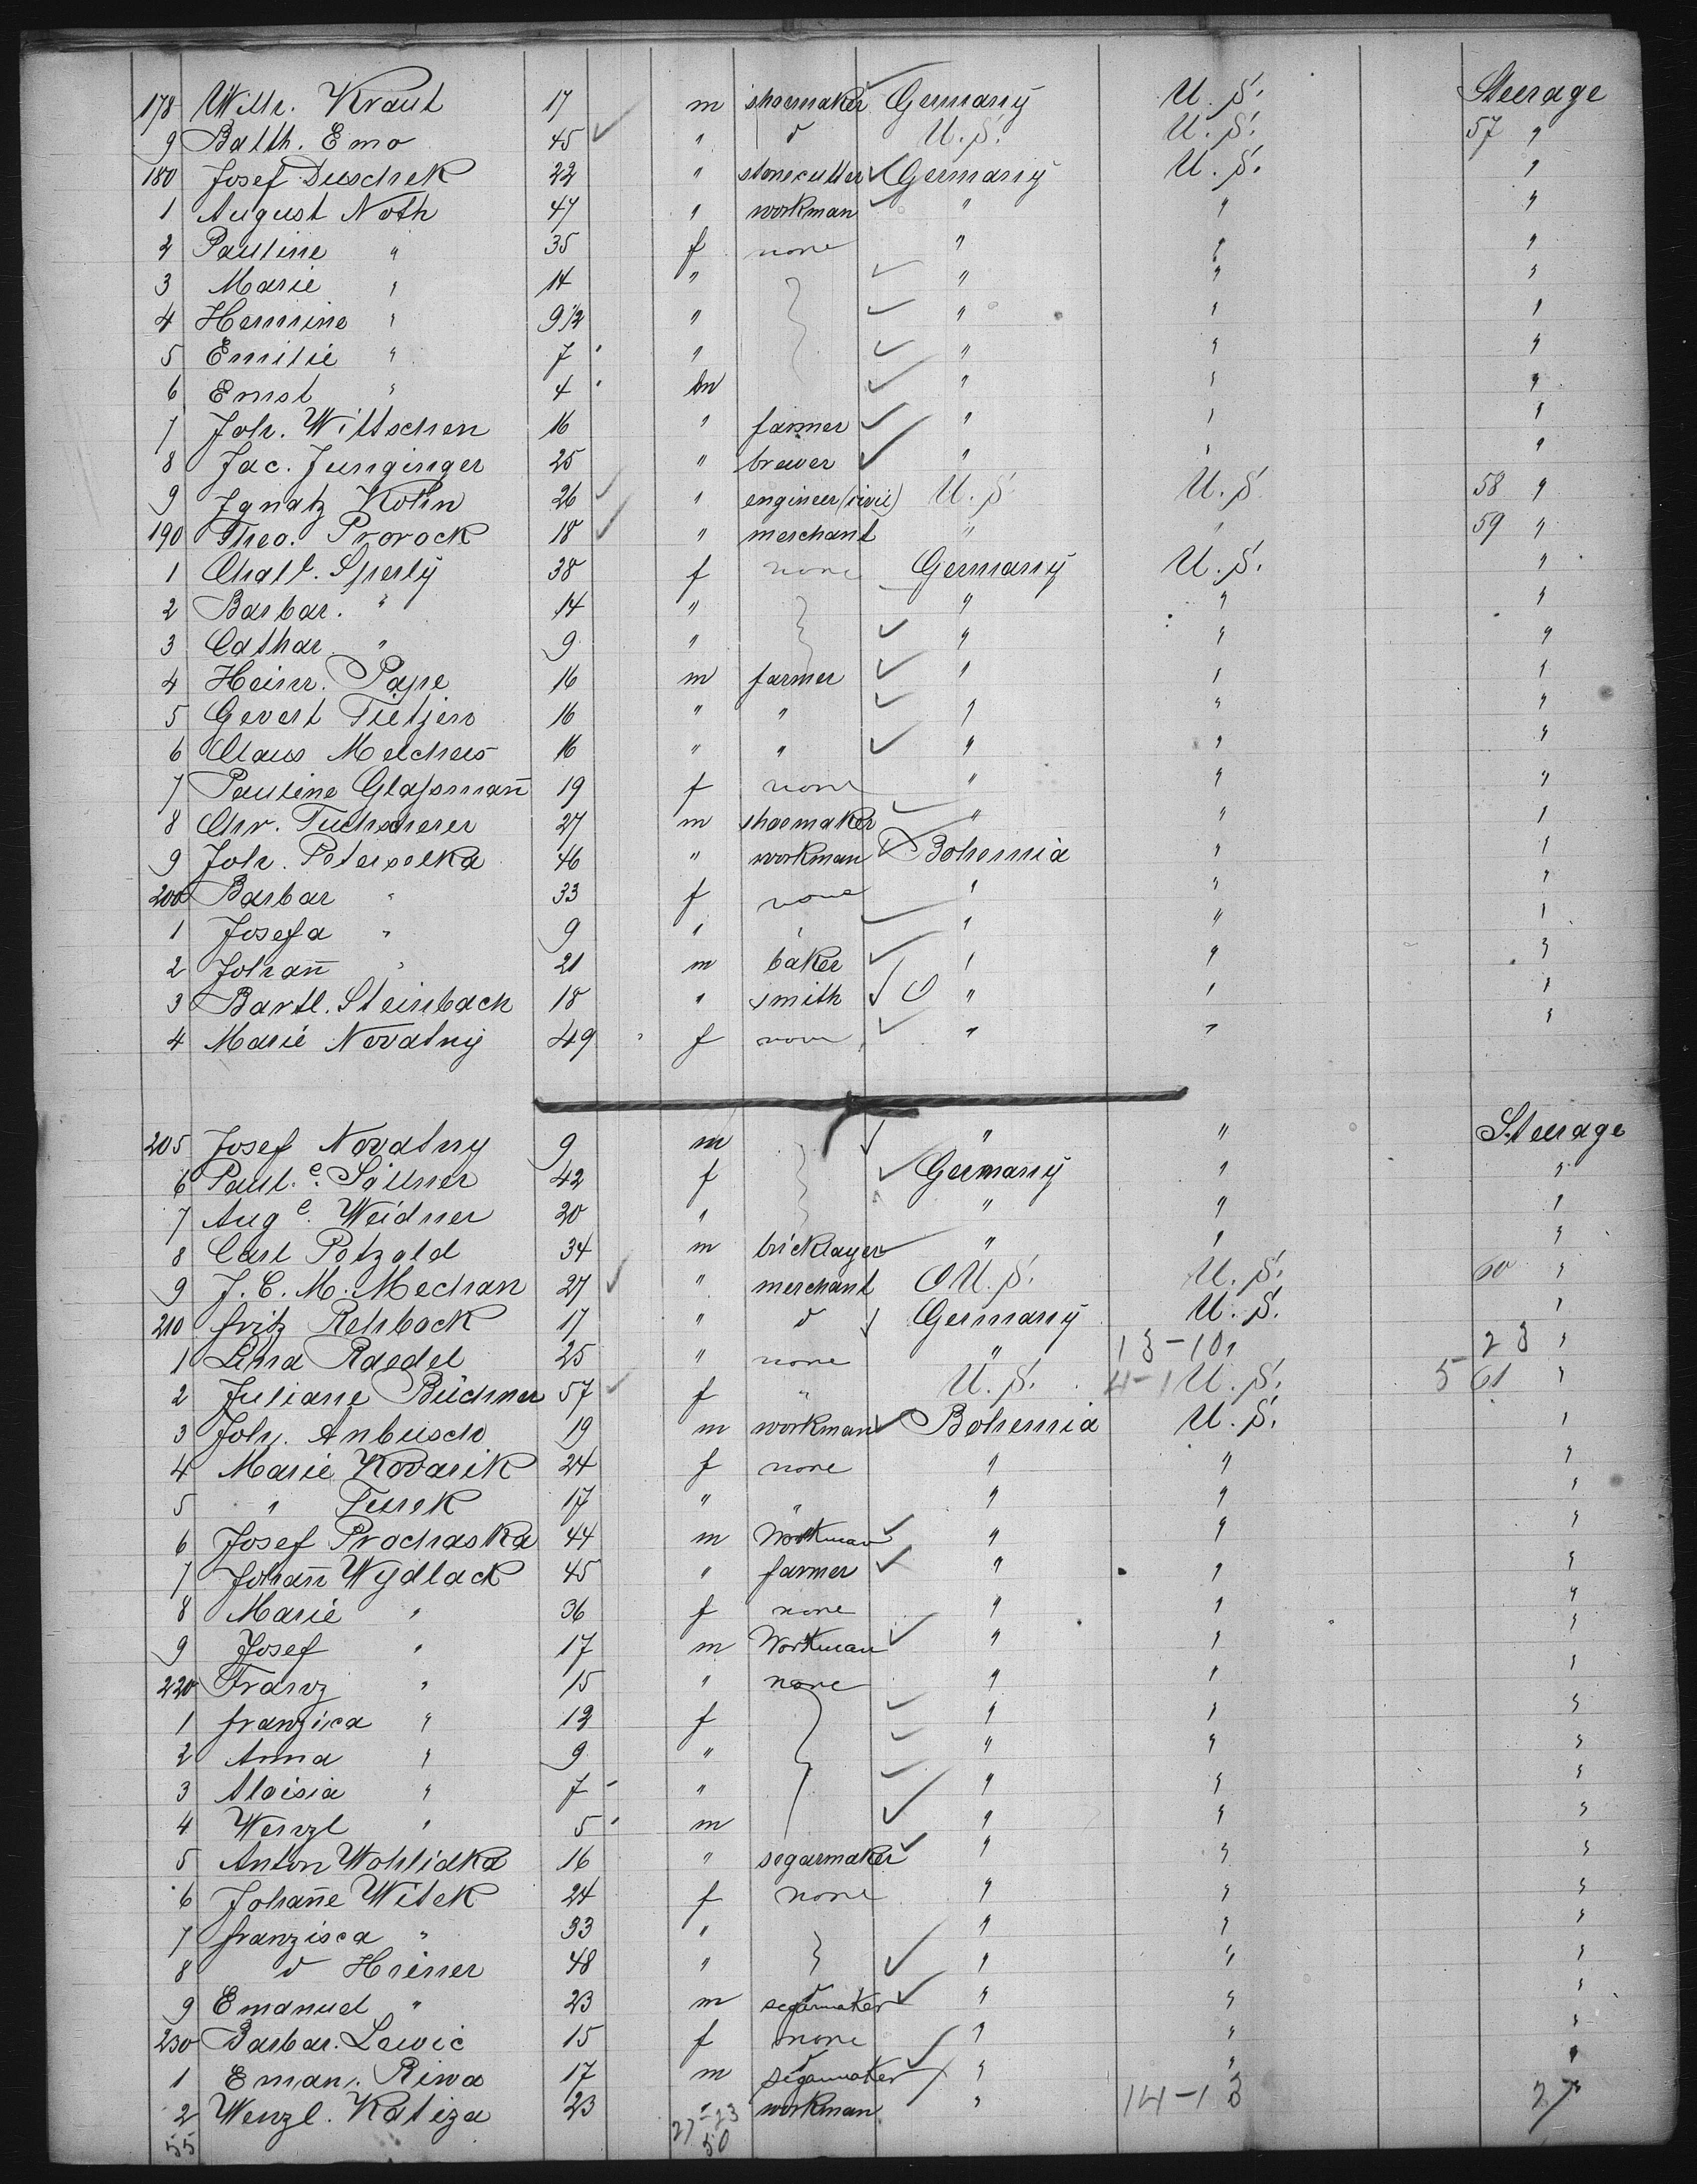 178 Wilh. Kraut 17 m shoemaker Germany U.S. Steerage
9 Balth. Emo 45 " d U.S. U.S. 57 "
180 Josef Duschek 22 " stonecutter Germany U.S. "
1 August Noth 47 " workman " " "
2 Pauline " 35 f none " " "
3 Marie " 14 " " " "
4 Hermine " 9 1/2 " " " "
5 Emilie " 7 " " " "
6 Ernst " 4 m " " "
7 Joh. Wittschen 16 " farmer " " "
8 Jac. Junginger 25 " brewer " " "
9 Ignatz Kohn 26 " engineer (civil) U.S. U.S. 58 "
190 Theo. Prorock 18 " merchant " " 59 "
1 Sperly 38 f none Germany U.S. "
2 Barbar. " 14 " " " "
3 Cathar. " 9 " " " "
4 Heinr. Pape 16 m farmer " " "
5 Gevert Tietjen 16 " " " " "
6 Claus Melchers 16 " " " " "
7 Pauline Glaßman̄ 19 f none " " "
8 Chr. Tuchscherer 27 m shoemaker " " "
9 Joh. Peterselka 46 " workman Bohemia " "
200 Barbar " 33 f none " " "
1 Josefa " 9 " " " " "
2 Johan̄ " 21 m baker " " "
3 Bartl. Steinbach 18 " smith " " "
4 Marie Novatny 49 f none " " "
205 Josef Novatny 9 m " " Steerage
6 Paul.e Söllner 42 f Germany " "
7 Aug e. Weidner 20 " " " "
8 Carl Petzold 34 m bricklayer " " "
9 J. C. M. Mechan 27 " merchant U.S. U.S. 60 "
210 Fritz Rehbock 17 " d Germany U.S. "
1 Lina Raedel 25 " none " 13-10 23 "
2 Juliane Büchner 57 f " U.S. 4-1 U.S. 5 61 "
3 Joh. Anbusch 19 m workman Bohemia U.S. "
4 Marie Kovarik 24 f none " " "
5 " Turek 17 " " " " "
6 Josef Prochaska 44 m Workman " " "
7 Johan̄ Wydlack 45 " farmer " " "
8 Marie " 36 f none " " "
9 Josef " 17 m Workman " " "
220 Franz " 15 " none " " "
1 Franzisca " 12 f " " "
2 Anna " 9 " " " "
3 Aloisia " 7 " " " "
4 Wenzl " 5 m " " "
5 Anton Wohlidka 16 " segarmaker " " "
6 Johan̄e Witek 24 f none " " "
7 Franzisca " 33 " " " "
8 d Heiner 48 " " " "
9 Emanuel " 23 m segarmaker " " "
230 Barbar. Lewic 15 f none " " "
1 Eman. Riwa 17 m segarmaker " " "
2 Wenzl. Katiza 23 " workman " 14-13 27
55 27-23
50